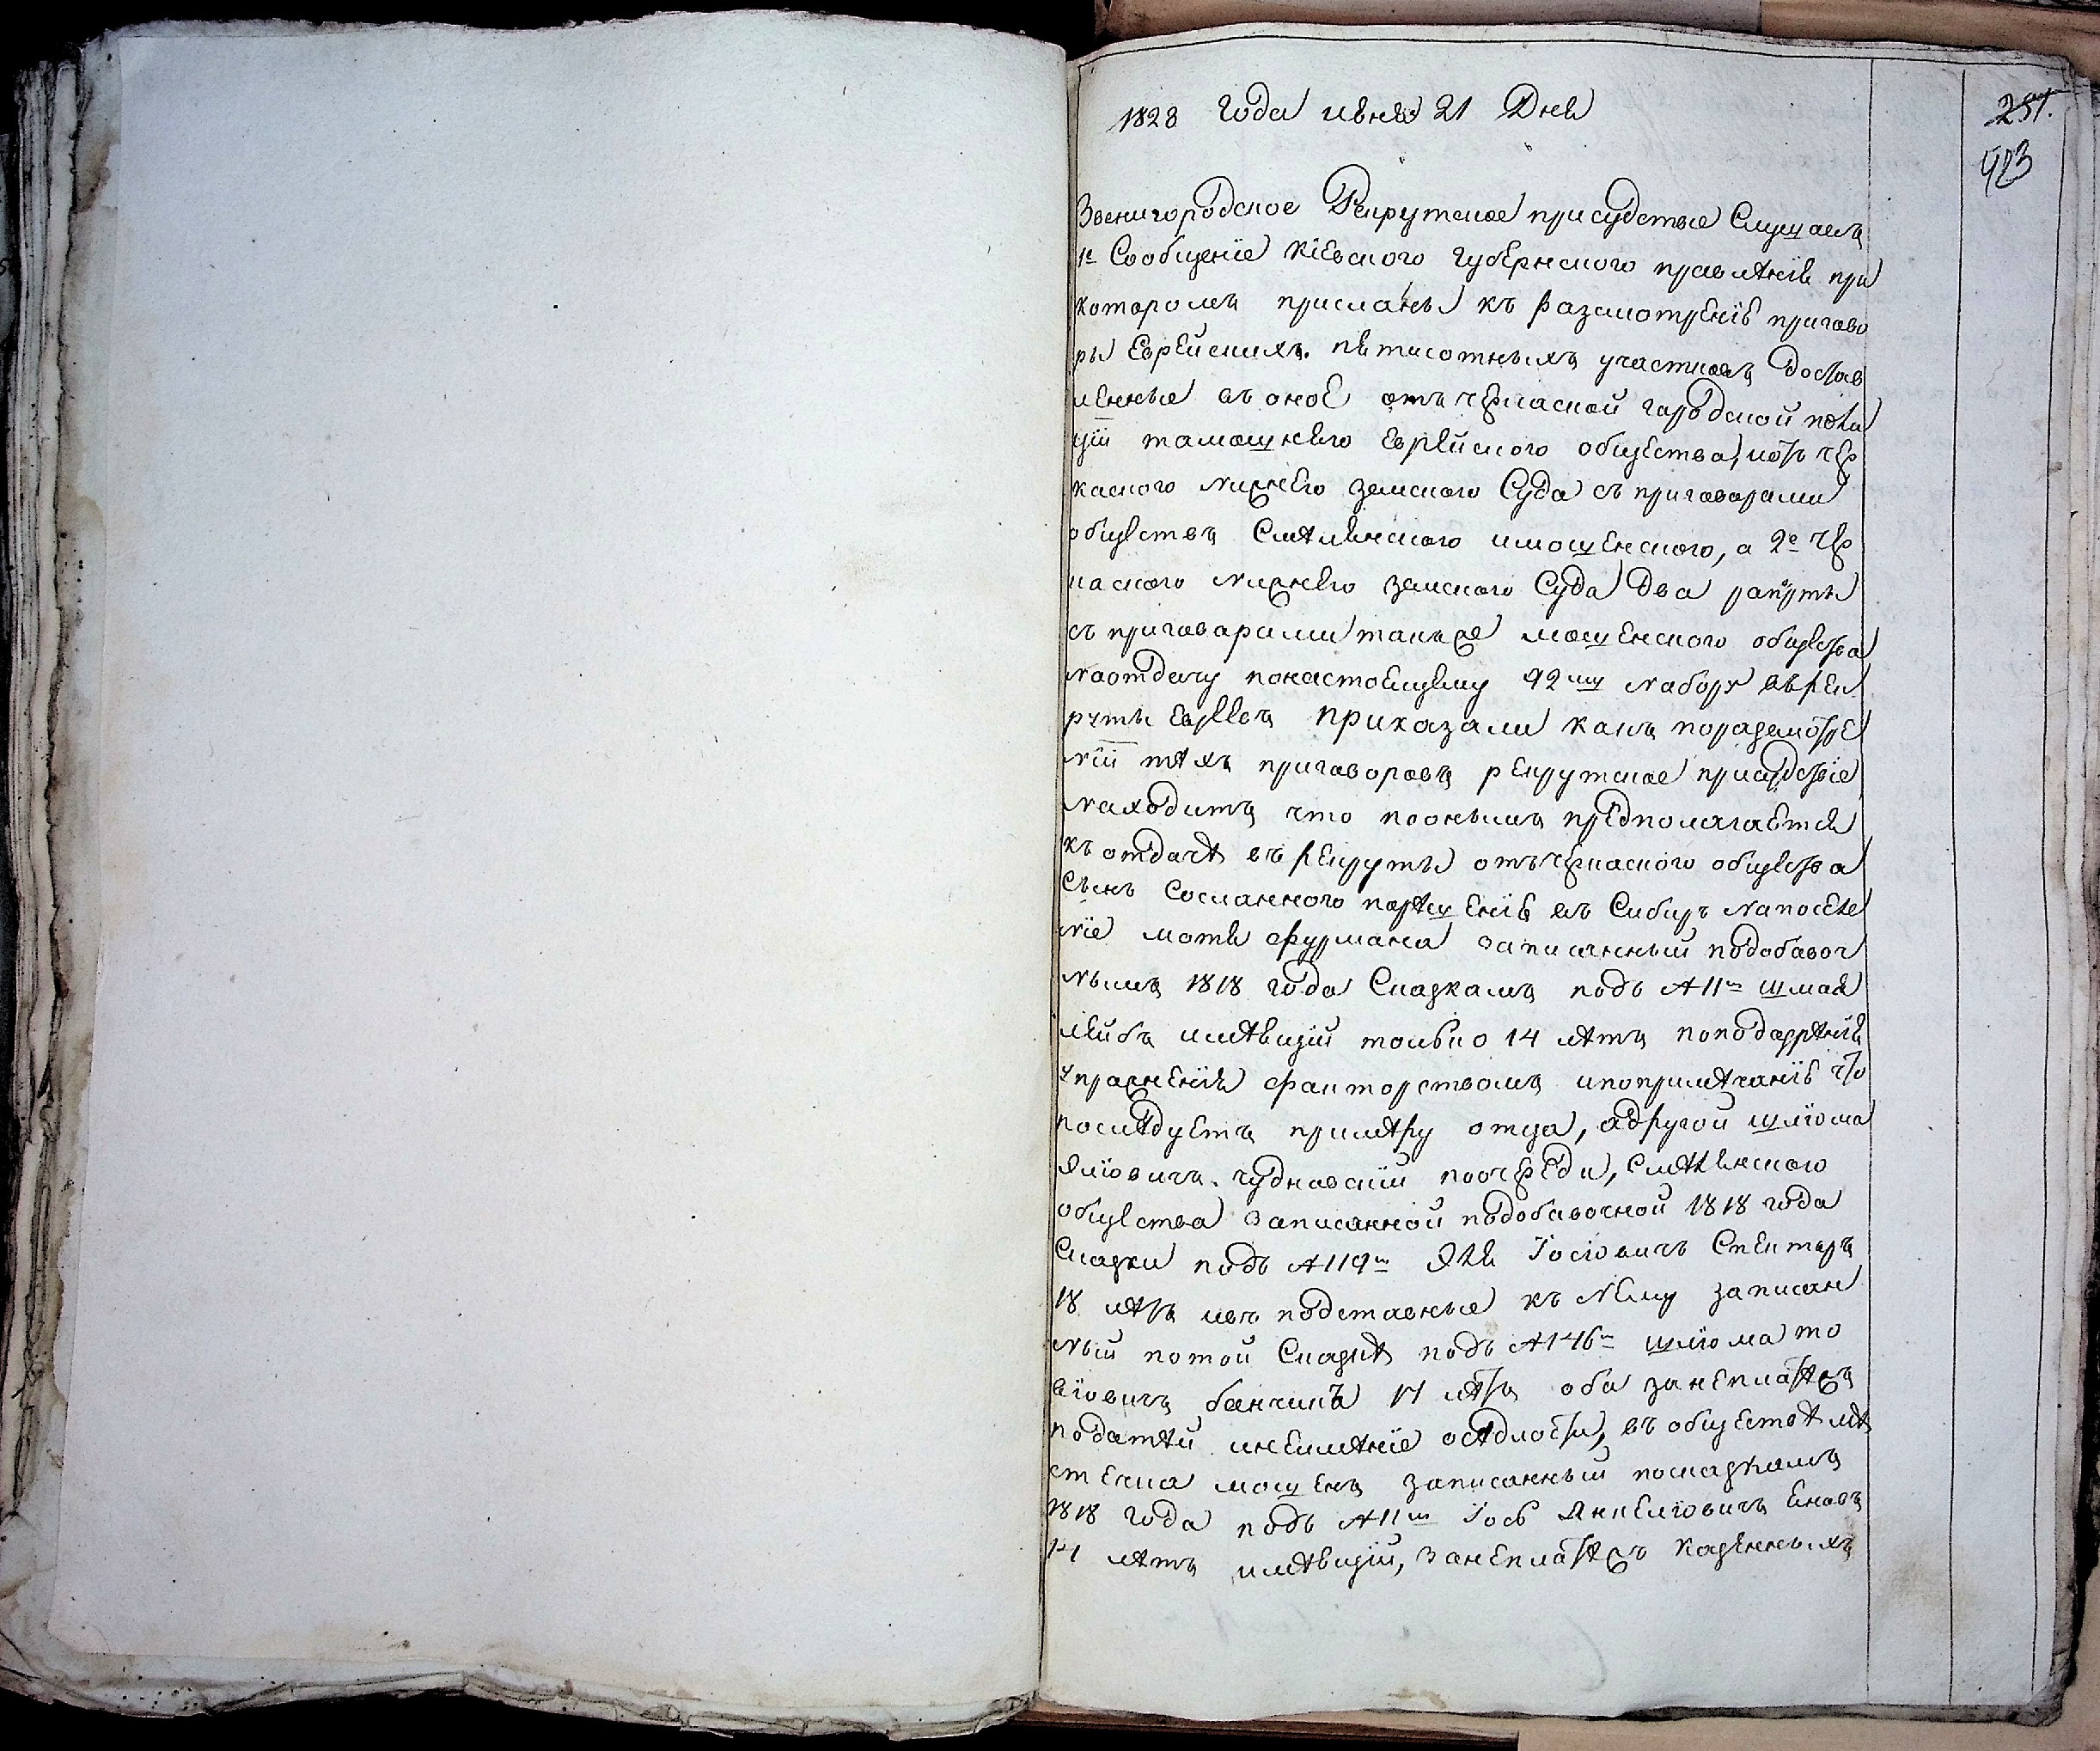 251.
423
1828 года июня 21 Дня
Звенигородское Рекрутское присудствие Слушавъ
1е Сообщеніе Кіевского губернского правлѣнія при
которомъ присланы къ разсмотренію пригаво
ры Еврейскихъ. пятисотныхъ участковъ достав
ленные въ оное отъ черкаской городской поли
ціи тамошняго Еврейского общества, иотъ чер
каского нижнего земского Суда съ приговорами
обществъ Смѣлянского имошенского, а 2е чер
каского нижнего земского Суда два рапорты
съ приговарами такъже мошенского общества
наотдачу понастоящему 92му набору въ рек
руты Евреевъ приказали какъ поразсмотре
ніи тѣхъ приговоровъ рекрутское присудствіе
находитъ что поонымъ предполагается
къ отдачѣ въ рекруты отъ черкаского общества
сынъ Сосланного порѣшенію въ Сибирь напоселе
ніе мотя фурмана записанный подобавоч
нымъ 1818 года Сказкамъ подъ №11м шмай
лейба имѣющій только 14 лѣтъ поподозрѣнію
упражненія факторствомъ ипопримѣчанію что
послѣдуетъ примѣру отца, адругой шліома
Эліовичъ. чудновскій поочереди, Смѣлянского
общества записанной подобавочной 1818 года
Сказки подъ №119м Эля Іосіовичъ Спекторъ
18 лѣтъ ивъ подставные къ нему записан
ный потой Сказкѣ подъ №146м шліома то
віовичъ банчикъ 17 лѣтъ оба занеплатежъ
податей инеимѣніе осѣдлости, въ обществѣ мѣ
стечка мошенъ записанный посказкамъ
1818 года подъ №11м Іось Янкеліовичъ
14 лѣтъ имѣющій, занеплатежъ казенныхъ